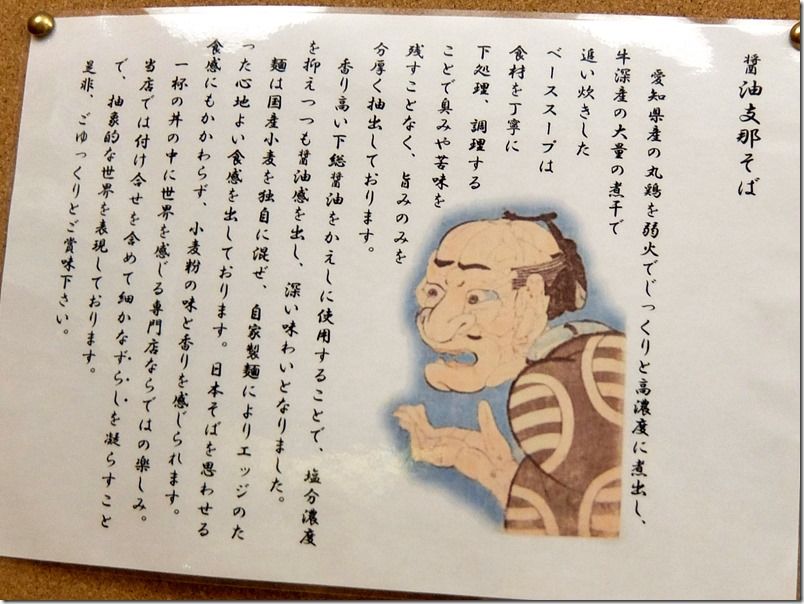 醤油支那そば
愛知県産の丸鶏を弱火でじっくりと高濃度に煮出し、
牛深産の大量の煮干で
追い炊きした
ベーススープは
食材を丁寧に
下処理、調理する
ことで臭みや苦味を
残すことなく、旨みのみを
分厚く抽出しております。
香り高い下総醤油をかえしに使用することで、塩分濃度
を抑えつつも醤油感を出し、深い味わいとなりました。
麺は国産小麦を独自に混ぜ、自家製麺によりエッジのた
った心地よい食感を出しております。日本そばを思わせる
食感にもかかわらず、小麦粉の味と香りを感じられます。
一杯の丼の中に世界を感じる専門店ならではの楽しみ。
当店では付け合せを含めて細かなずらしを凝らすこと
で、抽象的な世界を表現しております。
是非、ごゆっくりとご賞味下さい。